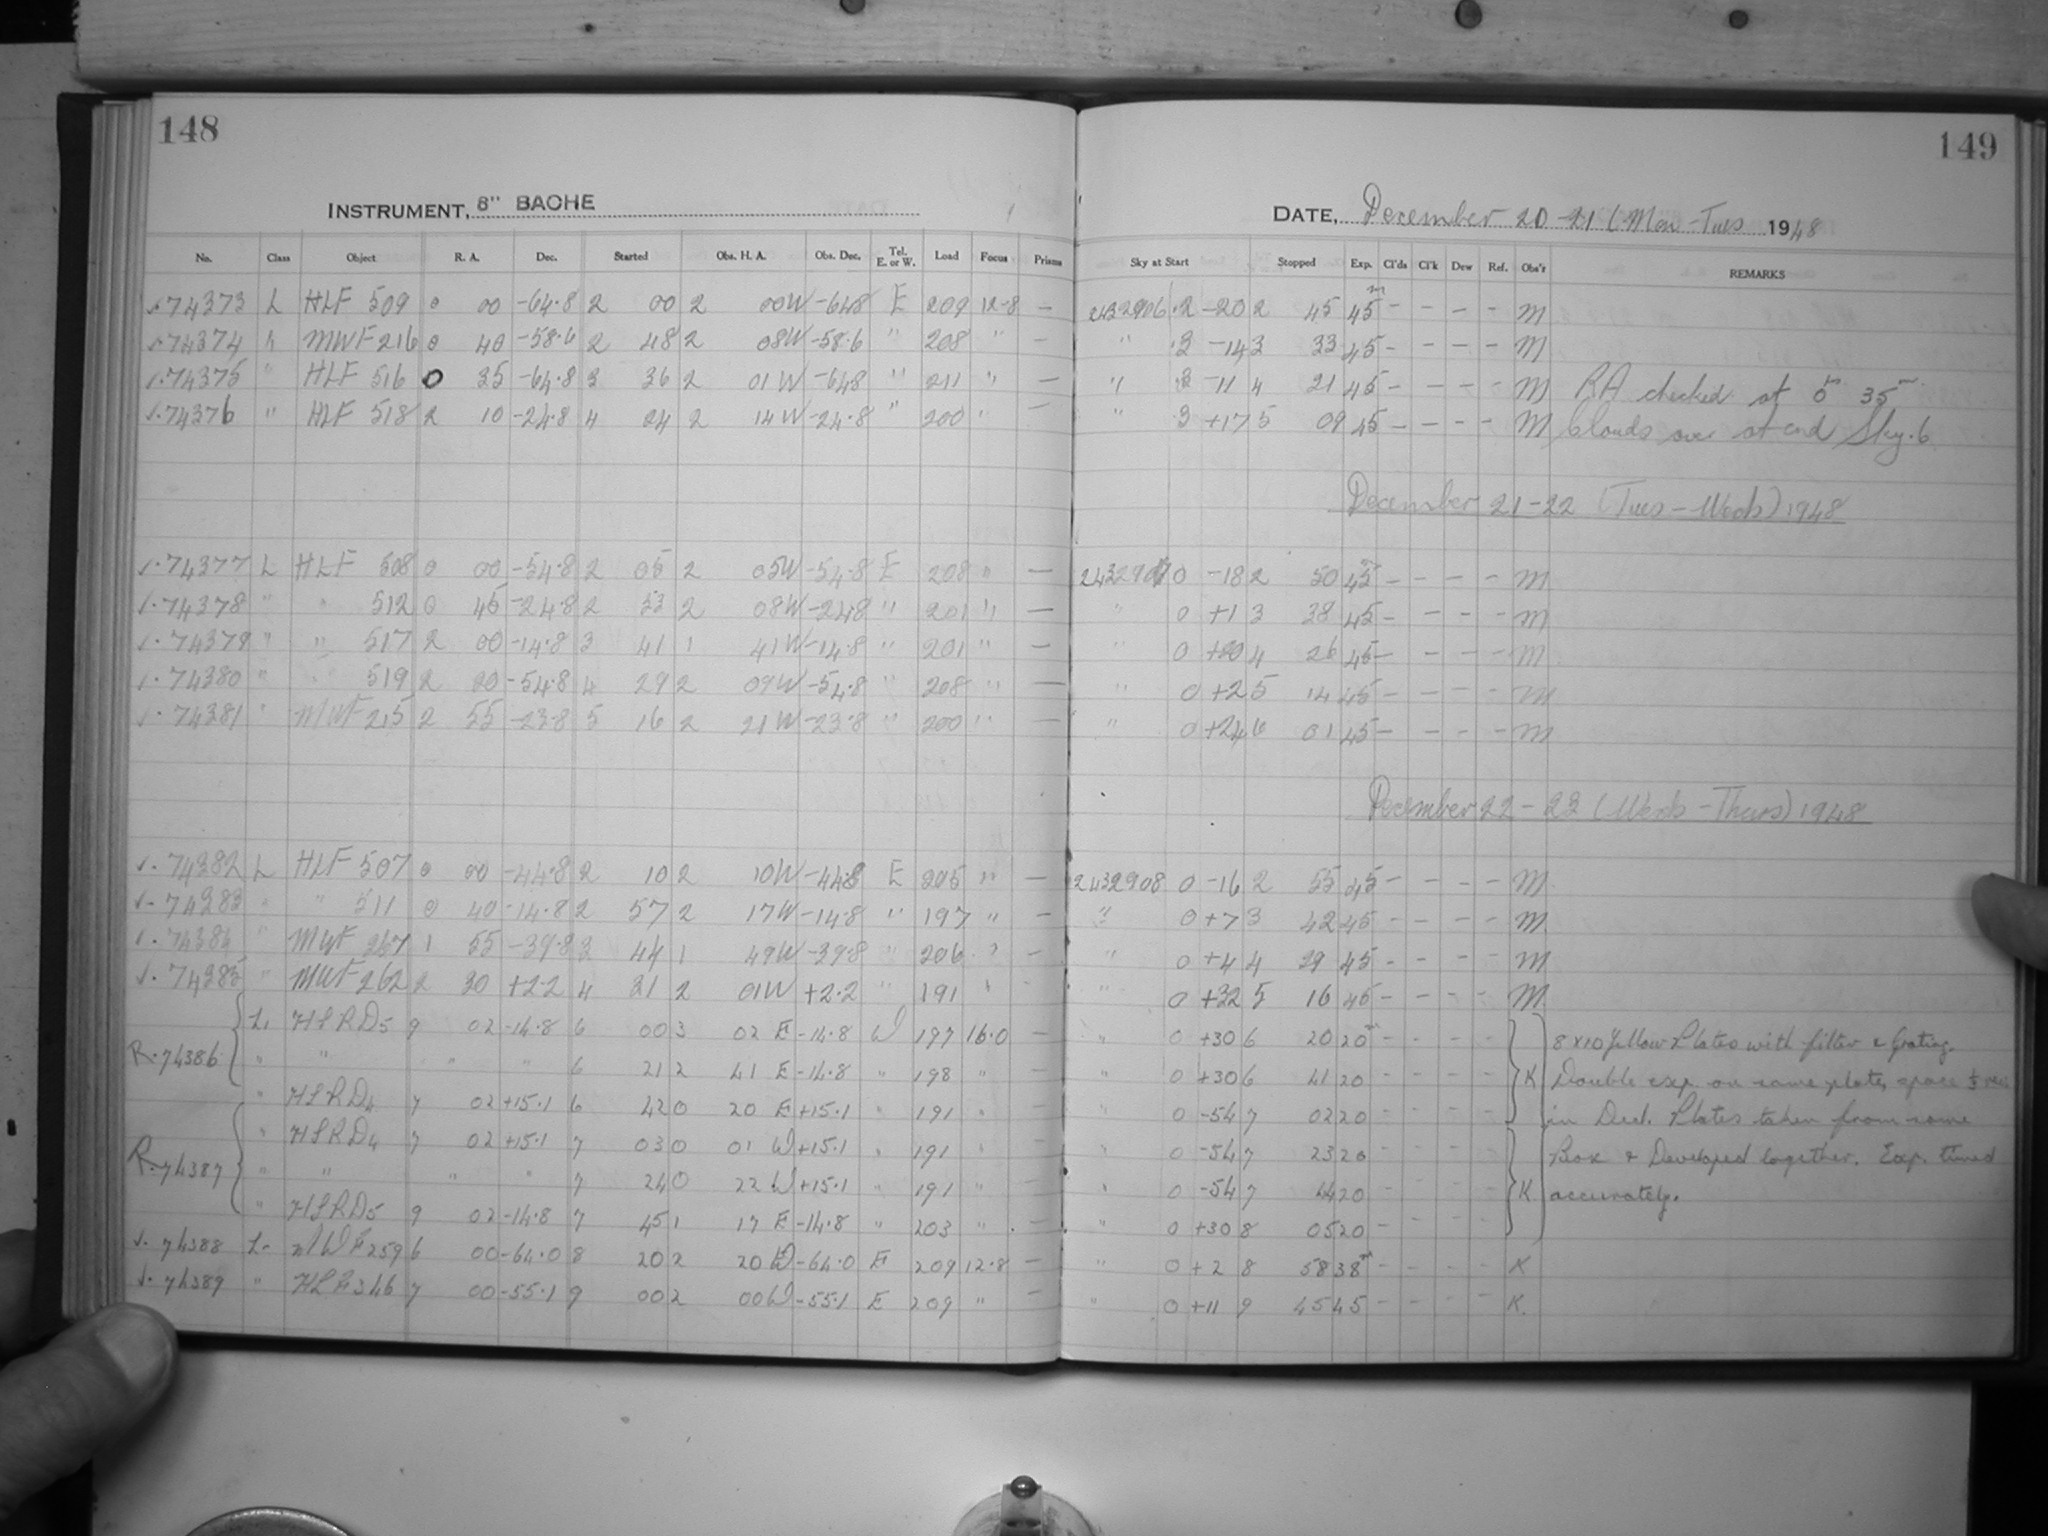 148
149
INSTRUMENT, 8" BACHE
DATE, December 20-21 (Mon-Tues 1948
No. Class Object R. A. Dec. Started Obs. H. A. Obs. Dec. Tel. E. or W. Load Focus Prisms Sky at Start Stopped Exp. Cl'ds Cl'k Dew Ref. Obs'r REMARKS
√.74373 L HLF 509 0 00 -64.8 2 00 2 00W -64.8 E 209 12.8 — 2432906 .2 -20 2 45 45m - - - - M
√.74374 " MWF 216 0 40 -58.6 2 48 2 08W -58.6 " 208 " - " .3 -14 3 33 45 - - - - M
√.74375 " HLF 516 0 35 -64.8 3 36 2 01W -648 " 211 " — " .3 -11 4 21 45 - - - - M RA checked at 0h 35m.
√.74376 " HLF 518 2 10 -24.8 4 24 2 14W -24.8 " 200 " — " 3 +17 5 09 45 - - - - M Clouds over at end Sky.6
December 21-22 (Tues - Weds) 1948
√.74377 L HLF 508 0 00 -54.8 2 05 2 05W -54.8 E 208 " — 2432907 0 -18 2 50 45m - - - - M
√.74378 " " 512 0 45 -24.8 2 53 2 08W -24.8 " 201 " — " 0 +1 3 38 45 - - - - M
√.74379 " " 517 2 00 -14.8 3 41 1 41W -14.8 " 201 " — " 0 +20 4 26 45 - - - - M
√.74380 " " 519 2 20 -54.8 4 29 2 09W -54.8 " 208 " — " 0 +2 5 14 45 - - - - M
√.74381 " MWF 215 2 55 -23.8 5 16 2 21W -23.8 " 200 " — " 0 +24 6 01 45 - - - - M
December 22-23 (Weds - Thurs) 1948
√.74382 L HLF 507 0 00 -44.8 2 10 2 10W -44.8 E 205 " — 2432908 0 -16 2 55 45 - - - - M
√.74383 " " 511 0 40 -14.8 2 57 2 17W -14.8 " 197 " — " 0 +7 3 42 45 - - - - M
√.74384 " MWF 267 1 55 -39.8 3 44 1 49W -39.8 " 206 " - " 0 +4 4 29 45 - - - - M
√.74385 " MWF 262 2 30 +2.2 4 31 2 01W +2.2 " 191 " - " 0 +32 5 16 45 - - - - M.
L. HLRD5 9 02 -14.8 6 00 3 02 E -14.8 W 197 16.0 — " 0 +30 6 20 20m - - - - 8x10 Yellow Plates with filter & Grating.
R.74386 " " " " 6 21 2 41 E -14.8 " 198 " — " 0 +30 6 41 20 - - - - K Double exp. on same plate, space
" HLRD4 7 02 +15.1 6 42 0 20 E +15.1 " 191 " — " 0 -54 7 02 20 - - - - in Decl. Plates taken from same
" HLRD4 7 02 +15.1 7 03 0 01 W +15.1 " 191 " — " 0 -54 7 23 20 - - - - Box & Developed together. Exp. timed
R.74387 " " " " 7 24 0 22 W +15.1 " 191 " — " 0 -54 7 44 20 - - - - K accurately.
" HLRD5 9 02 -14.8 7 45 1 17 E -14.8 " 203 " — " 0 +30 8 05 20 - - - -
√. 74388 L. MWF 259 6 00 -64.0 8 20 2 20 W -64.0 E 209 12.8 — " 0 +2 8 58 38m - - - - K
√. 74389 " HLF 346 7 00 -55.1 9 00 2 00W -55.1 E 209 " — " 0 +11 9 45 45 - - - - K.